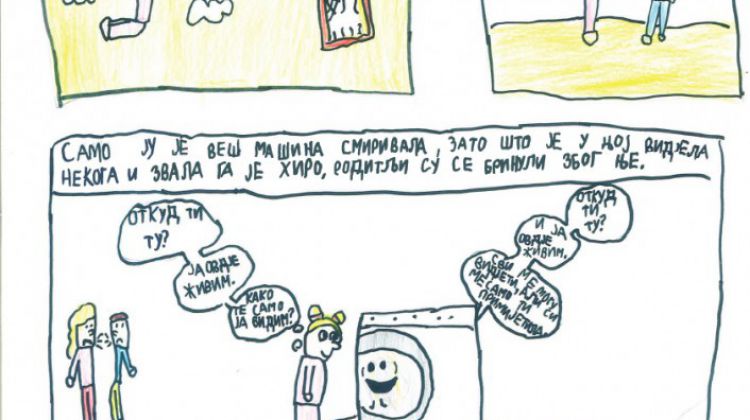 САМО ЈУ ЈЕ ВЕШ МАШИНА СМИРИВАЛА, ЗАТО ШТО ЈЕ У ЊОЈ ВИДЈЕЛА
НЕКОГА И ЗВАЛА ГА ЈЕ ХИРО, РОДИТЉИ СУ СЕ БРИНУЛИ ЗБОГ ЊЕ.
ОТКУД ТИ
ТУ?
ЈА ОВДЈЕ
ЖИВИМ.
КАКО
ТЕ САМО
ЈА ВИДИМ?
ОТКУД
ТИ
ТУ?
И ЈА
ОВДЈЕ
ЖИВИМ.
СВИ МЕ
ВИДЈЕТИ, АЛИ СИ
МЕ САМО ТИ